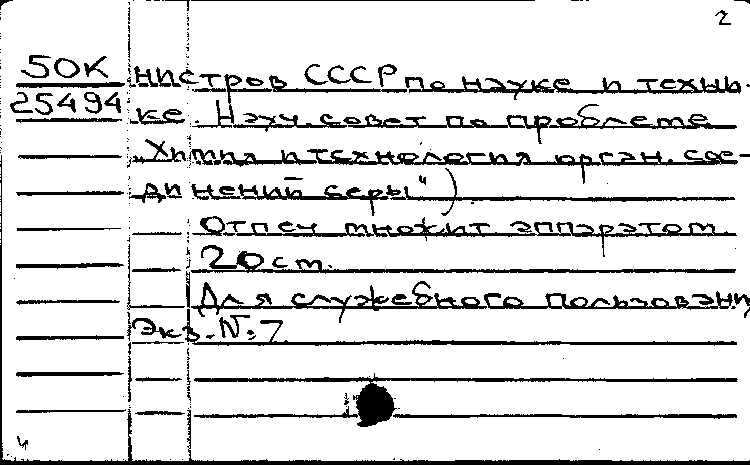 2
50К
25494
нистров СССР по науке и техни-
ке. Науч. совет по проблеме
„Химия и технология орган. сое-
динений серы")
Отпеч множит аппаратом.
20 ст.
Для служебного пользовани
Экз. №7.